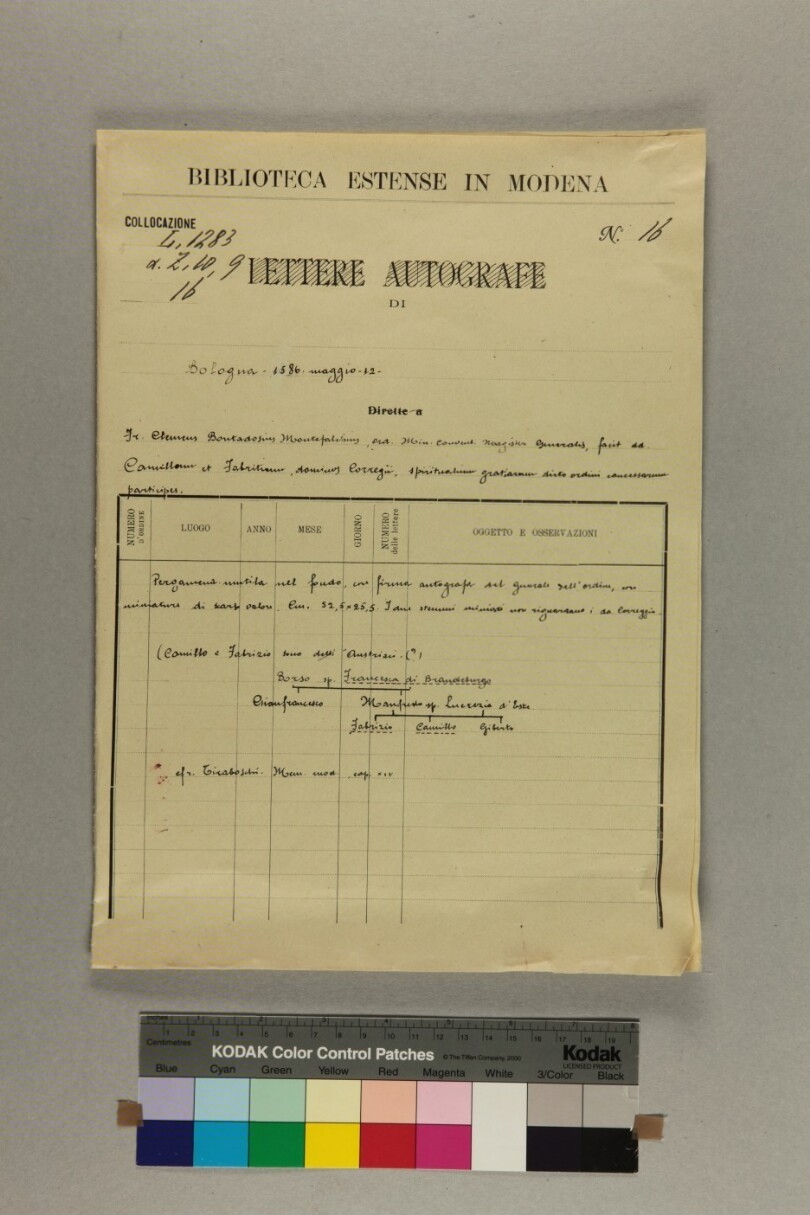 BIBLIOTECA ESTENSE IN MODENA
COLLOCAZIONE
L, 1283
α. Z, 10, 9
16
N. 16
LETTERE AUTOGRAFE
DI
Bologna - 1586. maggio - 12 -
Dirette a
Fr. Clemens Bontadosius Montefalchus, ord. Min. Convent. Magister Generalis, facit dd.
Camillum et Fabritium, dominos Corregii, spiritualium gratiarum dicto ordini concessarum
participes.
NUMERO D'ORDINE
LUOGO
ANNO
MESE
GIORNO
NUMERO delle lettere
OGGETTO E OSSERVAZIONI
Pergamena mutila nel fondo, con firma autografa del generale dell'ordine, con
miniature di scarso valore. Cm. 52,5 × 25,5. I due stemmi miniati non riguardano i da Correggio.
(Camillo e Fabrizio sono detti Austriaci. (?)
Borso sp. Francesca di Brandeburgo
Gianfrancesco Manfredo sp. Lucrezia d'Este.
Fabrizio Camillo Giberto
cfr. Tiraboschi. Mem. mod. cap. XIV
KODAK Color Control Patches
© The Tiffen Company, 2000
Kodak
LICENSED PRODUCT
Inches 1 2 3 4 5 6 7 8
Centimetres 1 2 3 4 5 6 7 8 9 10 11 12 13 14 15 16 17 18 19
Blue Cyan Green Yellow Red Magenta White 3/Color Black